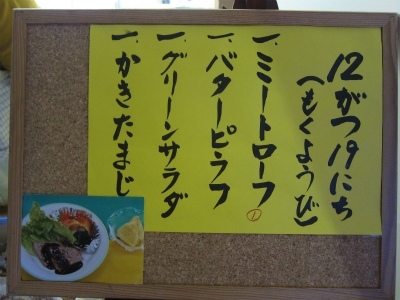 12がつ19にち
(もくようび)
一.ミートローフ①
一.バターピラフ
一.グリーンサラダ
一.かきたまじ